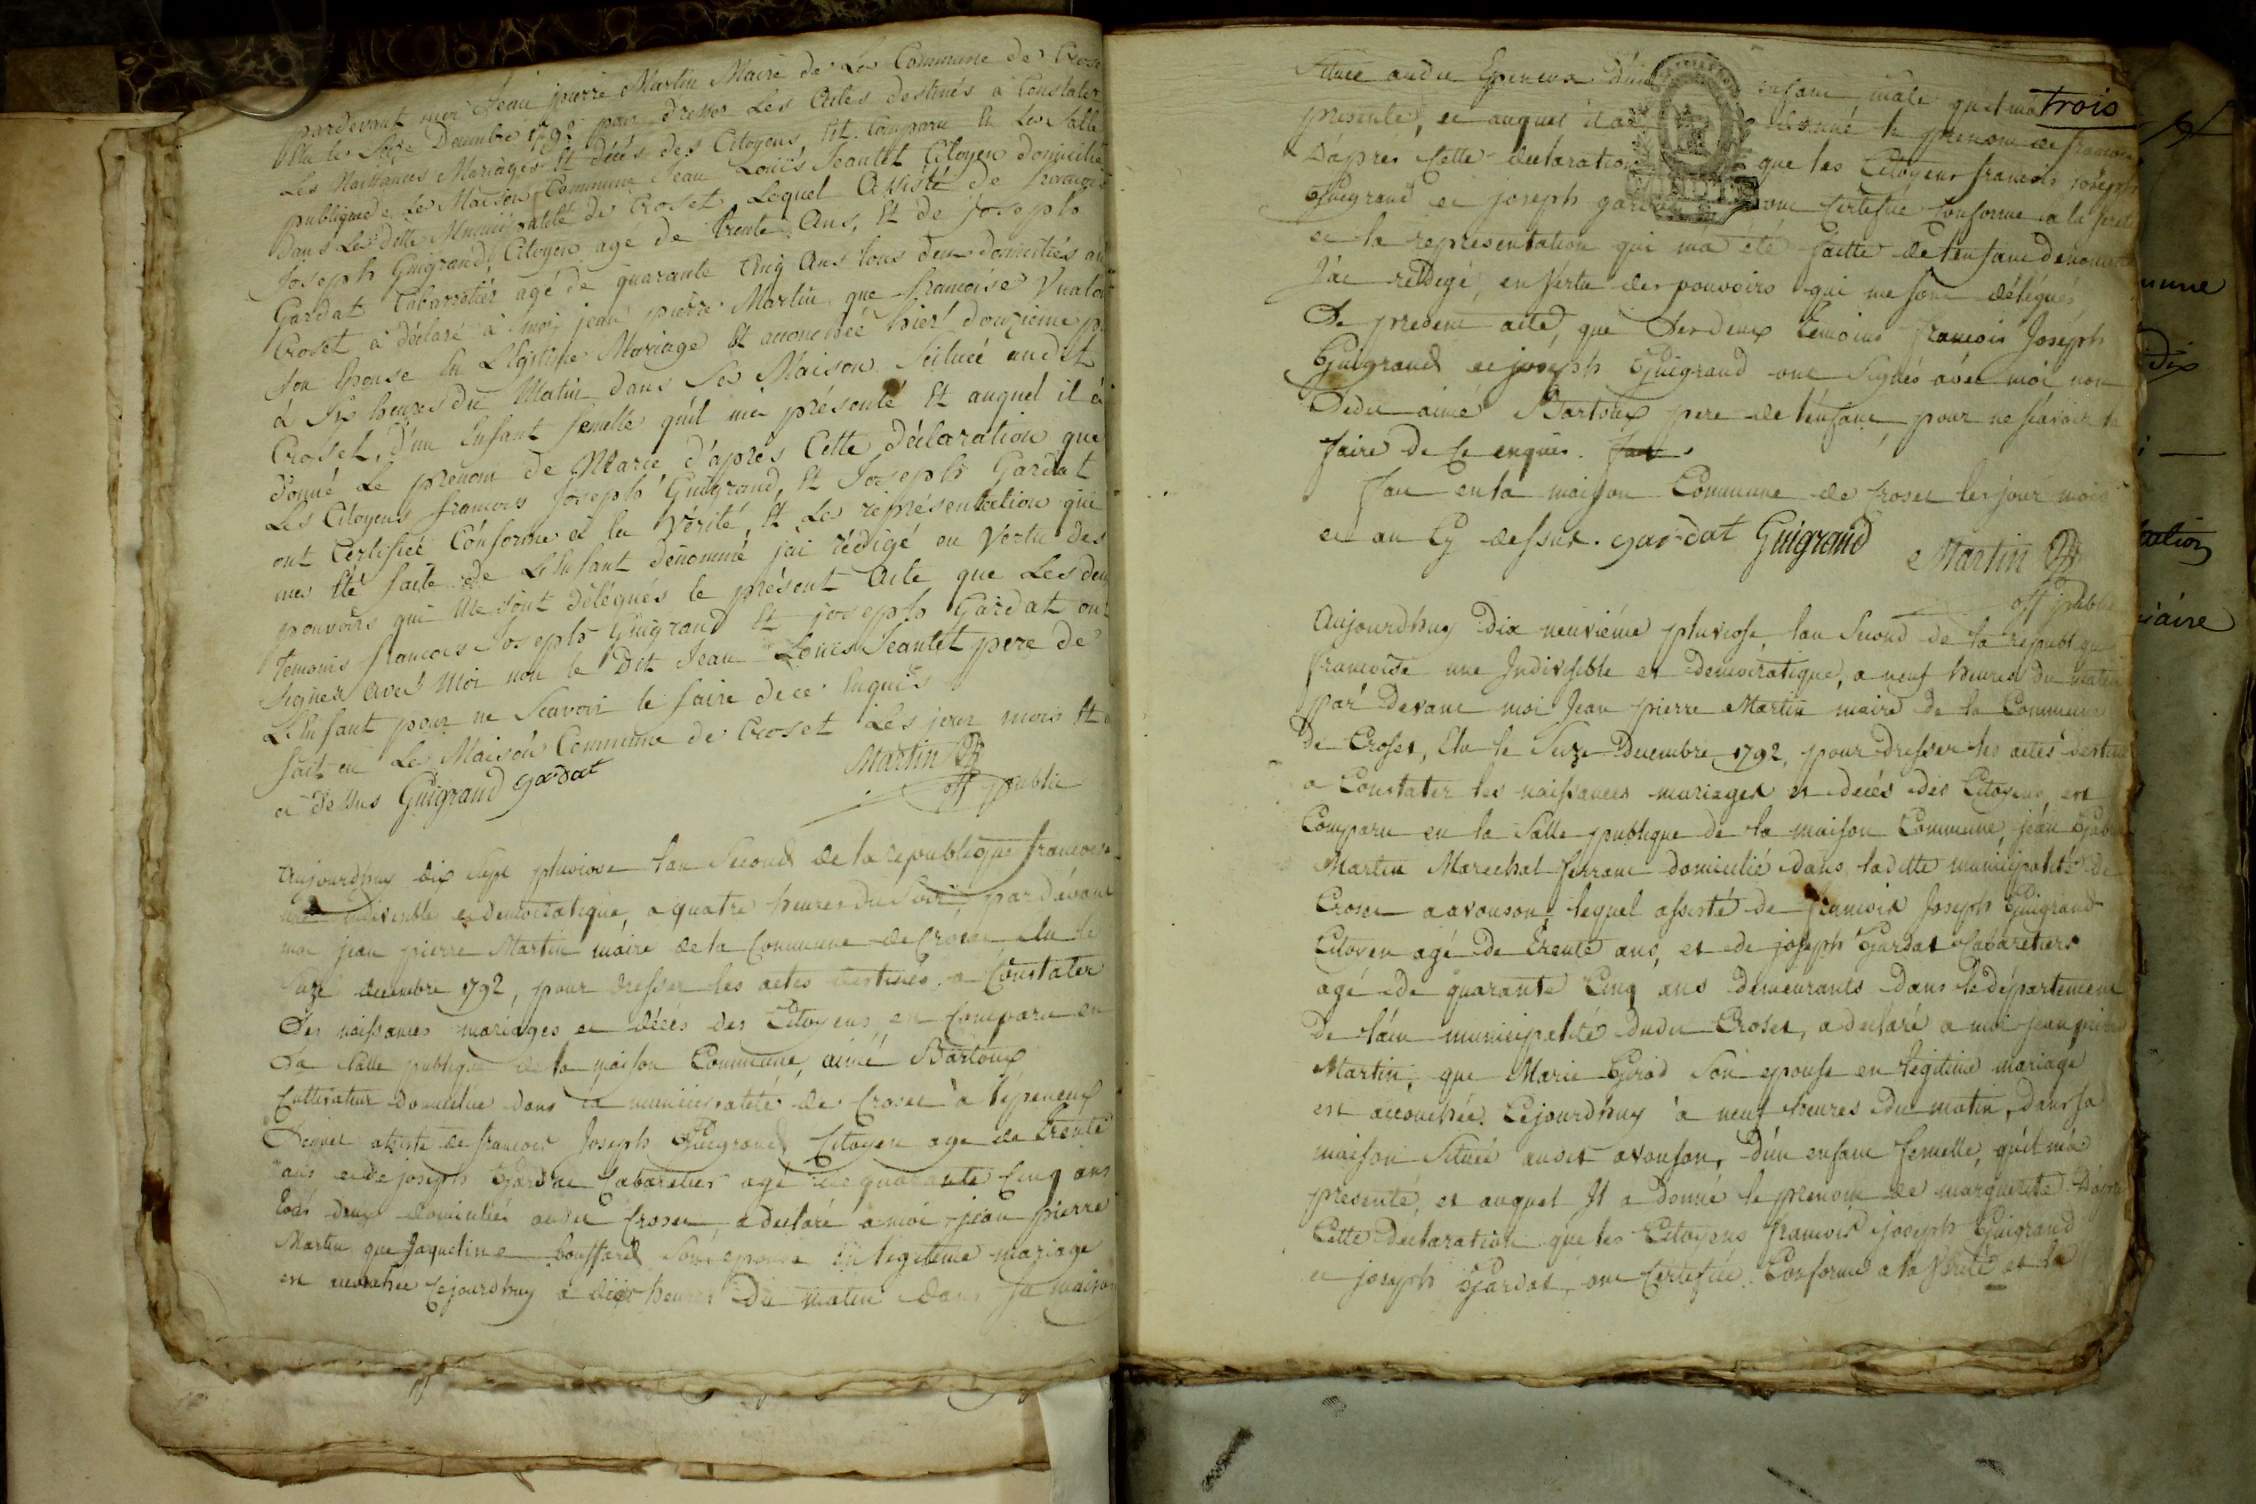 pardevant moi Jean pierre Martin Maire de La Commune de Croset
Elu le Seize Decembre 1792 pour dresser Les Actes destinés a Constater
Les Naissances Mariages Et décés des Citoyens Est Comparu En La Salle
publique de La Maison Commune Jean Louis Jeantet Citoyen domicilié
Dans La ditte Municipalité de Croset Lequel Assisté de francois
Joseph Guigrand, Citoyen agé de trente Ans, Et de Joseph
Gardat Cabarretier agé de quarante Cinq Ans tous deux domiciliés au
Croset a déclaré à moi jean pierre Martin que francoise
Son Epouse En Légitime Mariage Est accouchée hier douzieme
à Six heures du Matin dans Sa Maison Scituée audit
Croset, D'un Enfant femelle qu'il ma présenté Et auquel il à
donné Le prenom de Marie d'aprés Cette déclaration que
Les Citoyens francois Joseph Guigrand Et Joseph Gardat
ont Certifiée Conforme a la Vérité, Et La représentation qui
ma Eté faite de L'Enfant dénommé jai rédigé en Vertu des
pouvoirs qui Me sont délégués le présent Acte que Les deux
temoins francois Joseph Guigrand Et joseph Gardat ont
Signés avec Moi non le Dit Jean Louis Jeantet pere de
L'Enfant pour ne Scavoir le faire de ce Enquis
fait en La Maison Commune de Croset Les jour mois Et
ci dessus Guigrand gardat Martin
off public
Aujourdhuy dix Sept pluviose lan Second de la republique francoise
une indivisible et democratique, a quatre heures du Soir, par dévant
moi jean pierre Martin maire de la Commune de Croset elu le
Seize decembre 1792, pour dresser les actes destinés a Constater
Les naissances mariages et décés des Citoyens, est Comparu en
La Salle publique de la maison Commune, aimé Bartoux
Cultivateur domicilié dans la municipalité de Croset à l'épeneux
Lequel assisté de francois Joseph Guigrand Citoyen agé de trente
ans et de joseph Gardat Cabaretier agé de quarante Cinq ans
tous deux domiciliés audit Croset, a declaré a moi jean pierre
Martin que Jaqueline bouffard Son epouse en legitime mariage
est accouchée Cejourdhuy a dix heures Du matin dans Sa maison
trois
Située audit Epeneux d'un enfant mâle quil ma
presenté, et auquel il a donné le prenom de francois
D'apres Cette declaration que les Citoyens francois joseph
Guigrand et joseph gardat ont Certifiée Conforme a la verité
et la representation qui ma été faitte de l'enfant denommé
J'ai redigé, en Vertu des pouvoirs qui me sont délégués
Le present acte, que Les deux temoins francois Joseph
Guigrand et joseph Guigrand ont Signés avec moi non
Ledit aimé Bartoux pere de l'enfant, pour ne scavoir le
faire de Ce enquis. fait
fait en la maison Commune de Croset les jour mois
et an Cy dessus. gardat Guigrand Martin
off public
Aujourdhuy Dix neuviéme pluviose, lan Second de la republique
francoise une Indivisible et democratique, a neuf heures Du matin
par Devant moi Jean pierre Martin maire de la Commune
de Croset, Elu le Seize Decembre 1792, pour dresser les actes destinés
a Constater les naissances mariages et decés des Citoyens, est
Comparu en la Salle publique de la maison Commune jean
Martin Marechal ferrant domicilié dans ladite municipalité de
Croset a avouson, lequel assisté de francois Joseph Guigrand
Citoyen agé de trente ans, et de joseph Gardat Cabaretier
agé de quarante Cinq ans demeurants dans le département
de l'ain municipalité dudit Croset, a declaré a moi jean pierre
Martin, que Marie Girod Son epouse en légitime mariage
est accouchée Cejourd'huy à neuf heures du matin, dans sa
maison Située audit avouson, d'un enfant femelle, qu'il m'a
presenté, et auquel Il a Donné le prenom de marguerite. D'après
Cette Declaration que les Citoyens francois joseph Guigrand
et joseph Gardat, ont Certifiée Conforme a la Verité et la